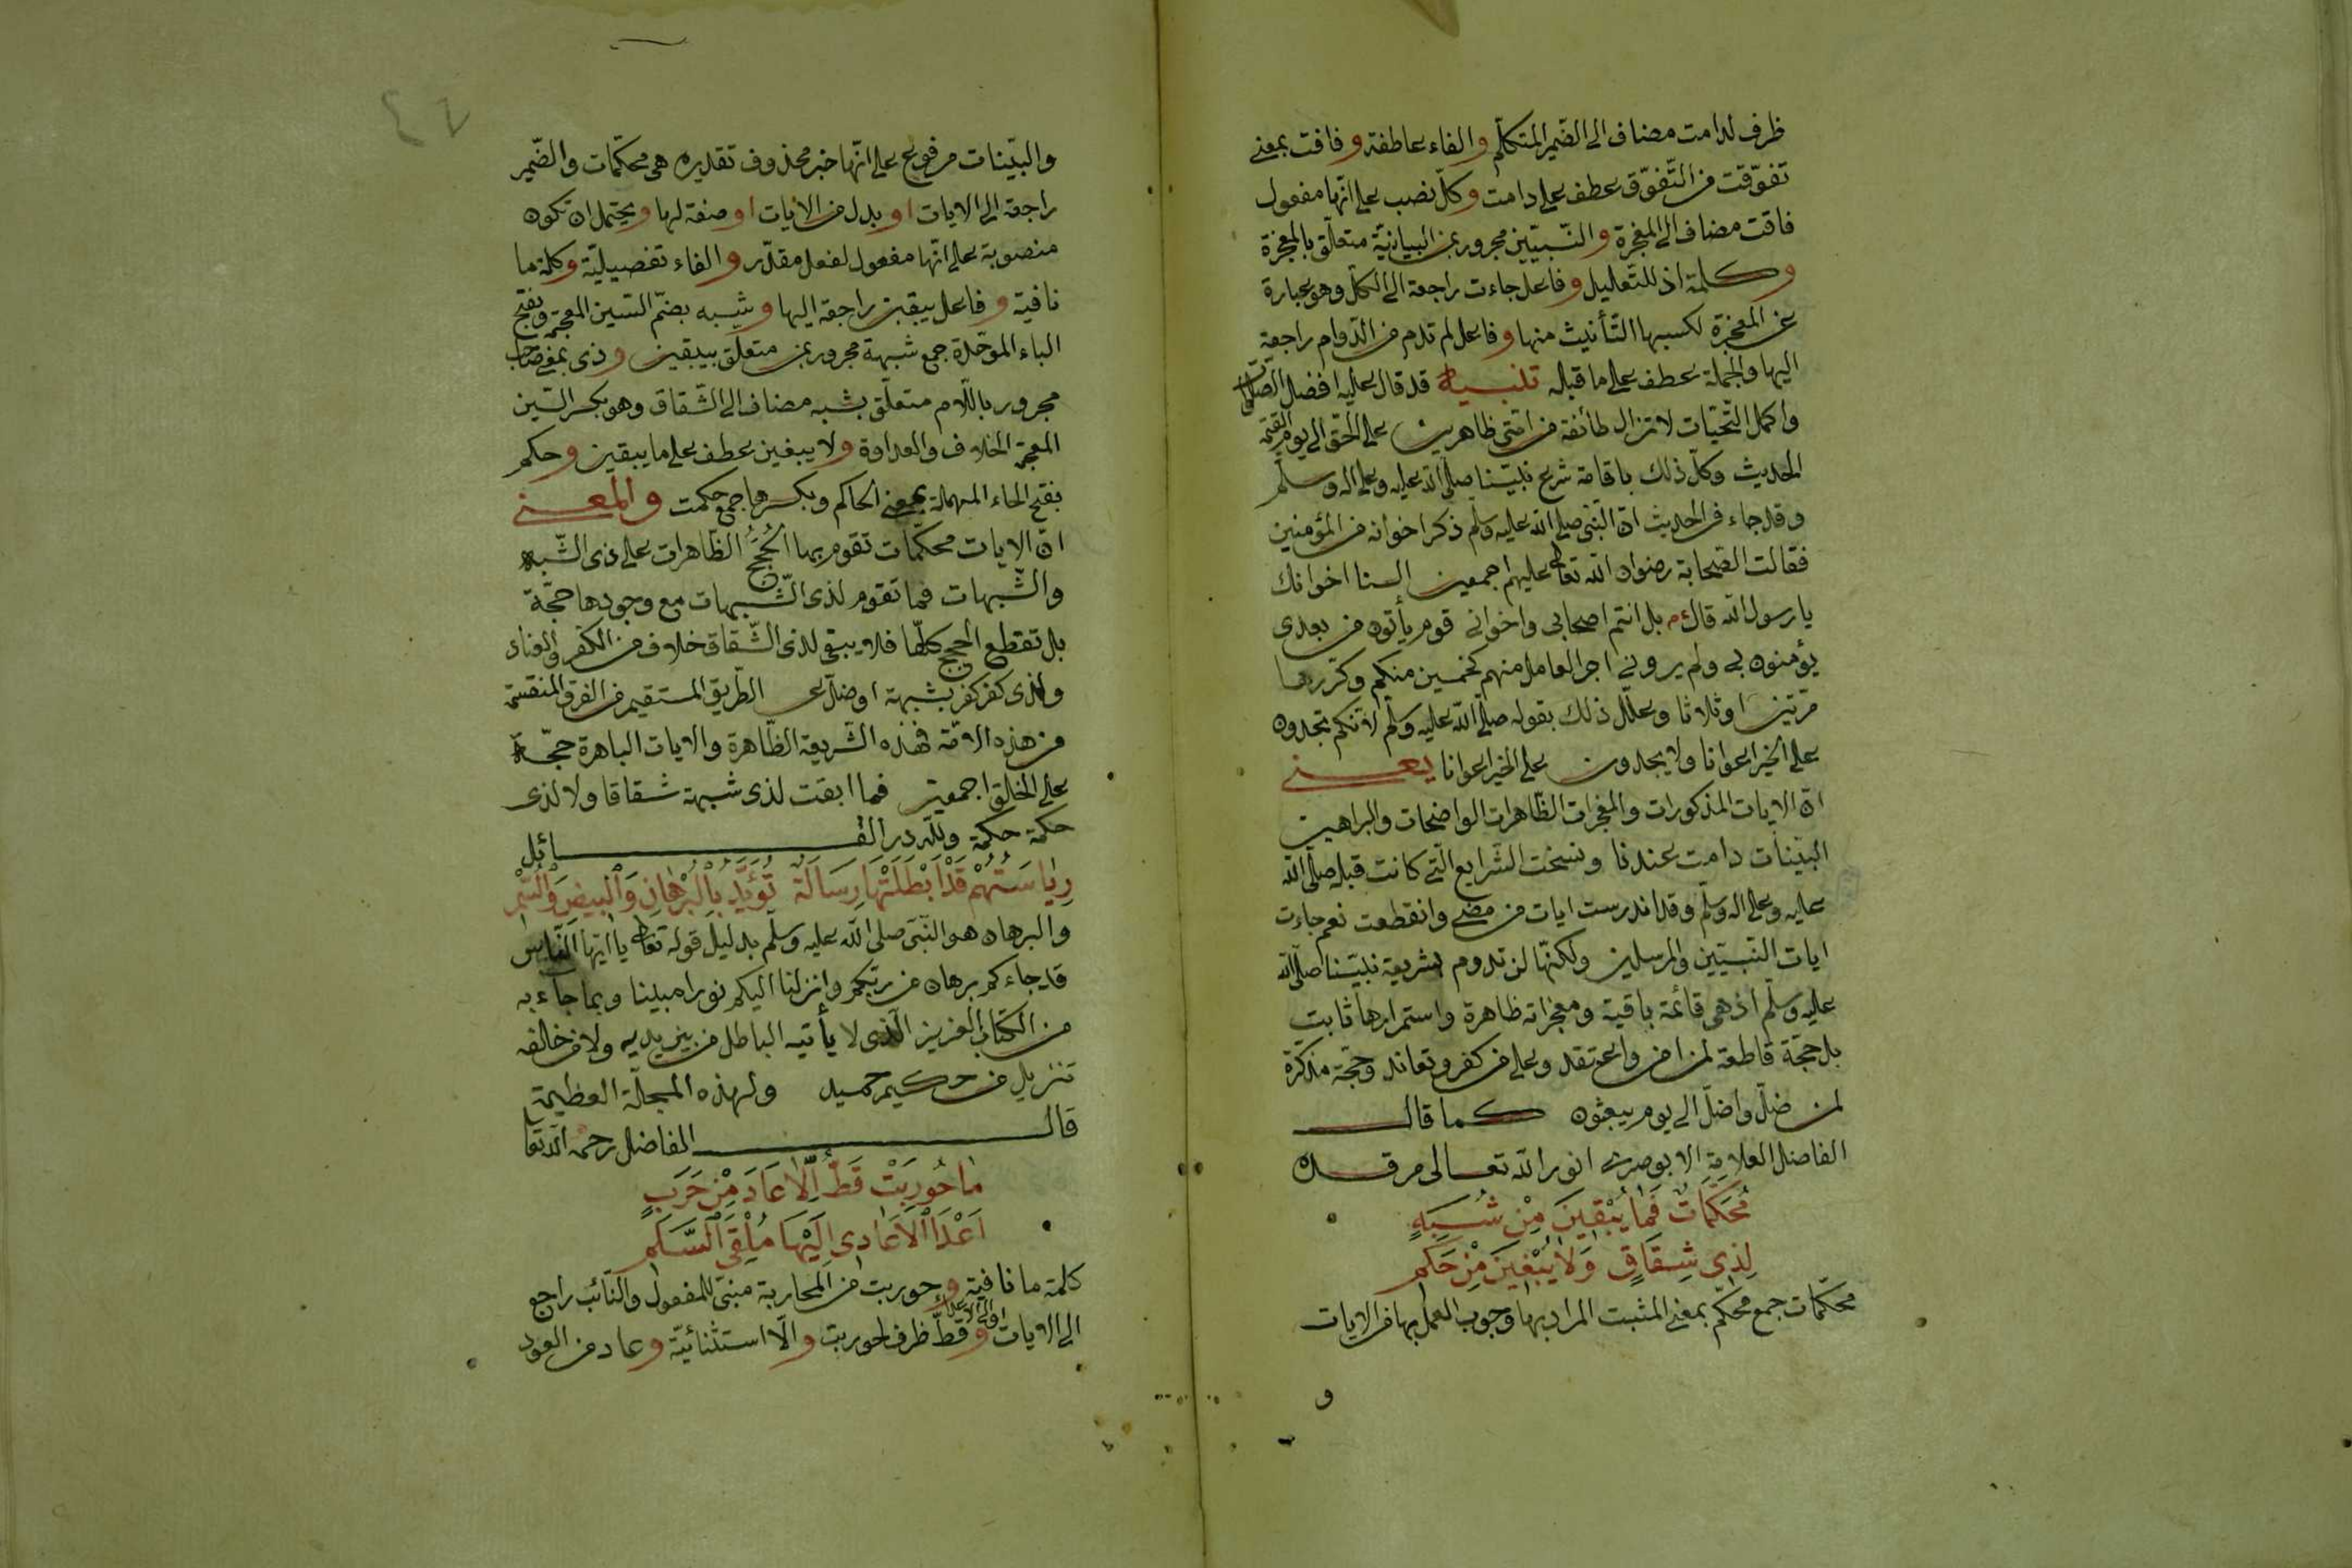 ظرف لدامت مضاف الى الضمير المتكلم والفاء عاطفة وفاقت بمعنى
تفوّقت من التّفوّق عطف على دامت وكلّ نصب على انّها مفعول
فاقت مضاف الى المعجزة والنّبيّين مجرور بمن البيانيّة متعلّق بالمعجزة
وكلمة اذ للتّعليل وفاعل جاءت راجعة الى الكلّ وهو عبارة
عن المعجزة لكسبها التّأنيث منها وفاعل لم تدم من الدّوام راجعة
اليها والجملة عطف على ما قبله تنبيه قد قال عليه افضل الصّلوات
واكمل التّحيّات لا تزال طائفة من امّتى ظاهرين على الحقّ الى يوم القيمة
الحديث وكلّ ذلك باقامة شرع نبيّنا صلّى الله عليه وعلى اله وسلّم
وقد جاء فى الحديث انّ النّبىّ صلى الله عليه وسلم ذكر اخوانه من المؤمنين
فقالت الصّحابة رضوان الله تعالى عليهم اجمعين السنا اخوانك
يا رسول الله قال م بل انتم اصحابى واخوانى قوم يأتون من بعدى
يؤمنون بى ولم يرونى اجر العامل منهم كخمسين منكم وكرّرها
مرّتين او ثلاثا وعلّل ذلك بقوله صلّى الله عليه وسلّم لانّكم تجدون
على الخير اعوانا ولا يجدون على الخير اعوانا يعنى
انّ الايات المذكورات والمعجزات الظّاهرات الواضحات والبراهين
البيّنات دامت عندنا ونسخت الشّرايع الّتى كانت قبله صلّى الله
عليه وعلى اله وسلّم وقد اندرست ايات من مضى وانقطعت نعم جاءت
ايات النّبيّين والمرسلين ولكنّها لن تدوم لشريعة نبيّنا صلّى الله
عليه وسلّم اذ هى قائمة باقية ومعجزاته ظاهرة واستمرارها ثابت
بل حجّة قاطعة لمن امن واعتقد وعلى من كفر وتعاند وحجّة مذكرة
لمن ضلّ واضلّ الى يوم يبعثون كما قال
الفاضل العلامة الابوصرى انور الله تعالى مرقده
مُحَكَّمَاتٌ فَمَا يُبْقِينَ مِنْ شُبَهٍ
لِذِى شِقَاقٍ وَلاَ يَبْغِينَ مِنْ حَكَمِ
محكّمات جمع محكّم بمعنى المثبت المراد بها وجوب العمل بها من الايات
و
والبيّنات مرفوع على انّها خبر محذوف تقديره هى محكّمات والضّمير
راجعة الى الايات او بدل من الايات او صفة لها ويحتمل ان تكون
منصوبة على انّها مفعول لفعل مقدّر والفاء تفصيليّة وكلمة ما
نافية وفاعل يبقين راجعة اليها وشبه بضمّ الشين المعجمة وبفتح
الباء الموحّدة جمع شبهة مجرور بمن متعلّق بيبقين وذى بمعنى صاحب
مجرور باللّام متعلّق بشبه مضاف الى الشّقاق وهو بكسر الشّين
المعجمة الخلاف والعداوة ولا يبغين عطف على ما يبقين وحكم
بفتح الحاء المهملة بمعنى الحاكم وبكسرها جمع حكمت والمعنى
انّ الايات محكّمات تقوم بها الحُجَجُ الظّاهرات على ذى الشّبه
والشّبهات فما تقوم لذى الشّبهات مع وجودها حجّة
بل تقطع الحجج كلّها فلا يبقى لذى الشّقاق خلاف من الكفر والعناد
والذى كفر كفر بشبهة او ضلّ عن الطّريق المستقيم من الفرق المنقسمة
من هذه الامّة فهذه الشّريعة الظّاهرة والايات الباهرة حجّة
على الخلق اجمعين فما ابقت لذى شبهة شقاقا ولا لذى
حكمة حكمة ولله در القائل
رِيَاسَتُهُمْ قَدْ اَبْطَلَتْهَا رِسَالَةٌ تُؤَيَّدُ بِالْبُرْهَانِ وَالْبِيضِ وَالسُّمْرِ
والبرهان هو النّبىّ صلى الله عليه وسلّم بدليل قوله تعالى يا ايّها النّاس
قد جاءكم برهان من ربّكم وانزلنا اليكم نورا مبينا وبما جاء به
من الكتاب العزيز الّذى لا يأتيه الباطل من بين يديه ولا من خالفه
تنزيل من حكيم حميد ولهذه المجلّة العظيمة
قال الفاضل رحمه الله تعا
مَا حُورِبَتْ قَطُّ اِلَّا عَادَ مِنْ حَرَبٍ
اَعْدَا الْاَعَادِى اِلَيْهَا مُلْقِىَ السَّلَمِ
كلمة ما نافية وحوربت من المحاربة مبنىّ للمفعول والنّائب راجع
الى الايات وقطّ ظرف لحوربت والّا استثنائيّة وعاد من العود